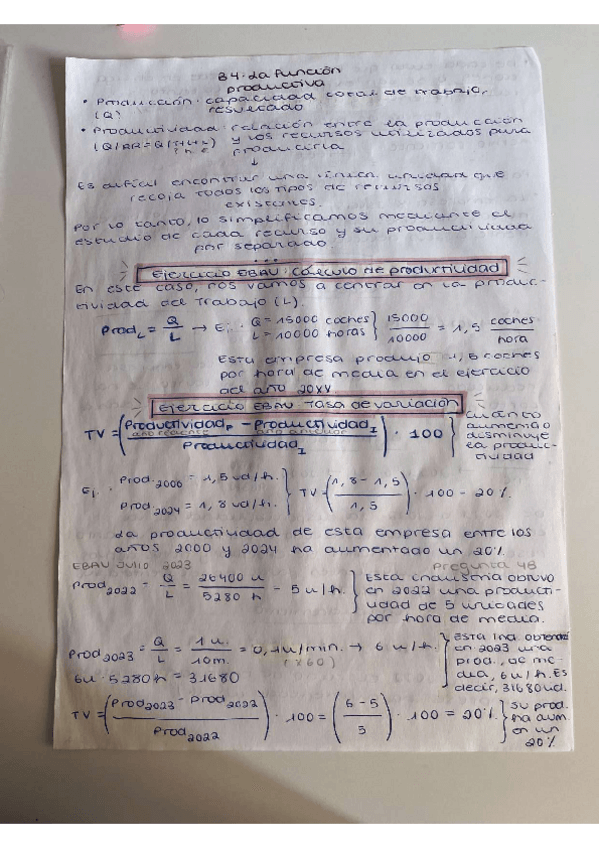 B4. La función
productiva
• Producción: capacidad total de trabajo,
(Q) resultado
• Productividad: relación entre la producción
y los recursos utilizados para
producirla
↓
Es difícil encontrar una única unidad que
recoja todos los tipos de recursos
existentes.
Por lo tanto, lo simplificamos mediante el
estudio de cada recurso y su productividad
por separado.
...
Ejercicio EBAU: Cálculo de productividad
En este caso, nos vamos a centrar en la produc-
tividad del Trabajo (L).
Prod_L = Q/L → Ej. Q = 15000 coches L = 10000 horas } 15000/10000 = 1,5 coches/hora
Esta empresa produjo 1,5 coches
por hora de media en el ejercicio
del año 20XX
Ejercicio EBAU Tasa de variación
TV = ((Productividad_F año reciente - Productividad_I año anterior) / Productividad_I) · 100 } cuánto aumentó o disminuye la produc-tividad
Ej. Prod. 2000 = 1,5 ud/h. Prod. 2024 = 1,8 ud/h. } TV = ((1,8 - 1,5) / 1,5) · 100 = 20%.
La productividad de esta empresa entre los
años 2000 y 2024 ha aumentado un 20%
EBAU JULIO 2023 Pregunta 4B
Prod 2022 = Q/L = 26400 u / 5280 h = 5 u/h. } Esta industria obtuvo en 2022 una producti-vidad de 5 unidades por hora de media.
Prod 2023 = Q/L = 1 u. / 10m. = 0,1u/min. → (x60) 6 u/h. } Esta ind. en 2023 una prod., de me-dia, 6 u/h. Es decir, 31680 ud.
6u · 5280h = 31680
TV = ((Prod 2023 - Prod 2022) / Prod 2022) · 100 = ((6 - 5) / 5) · 100 = 20%. } su prod. ha aum. en un 20%